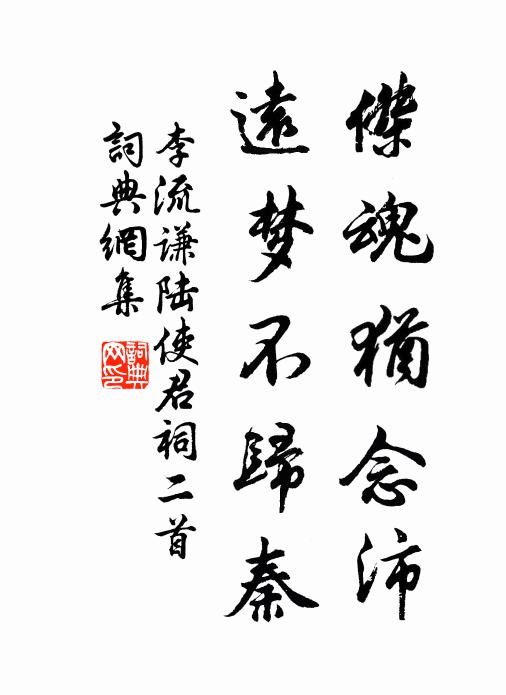 傑魂猶念沛
遠梦不歸秦
李流谦陆使君祠二首
詞典網集
詞典
网印